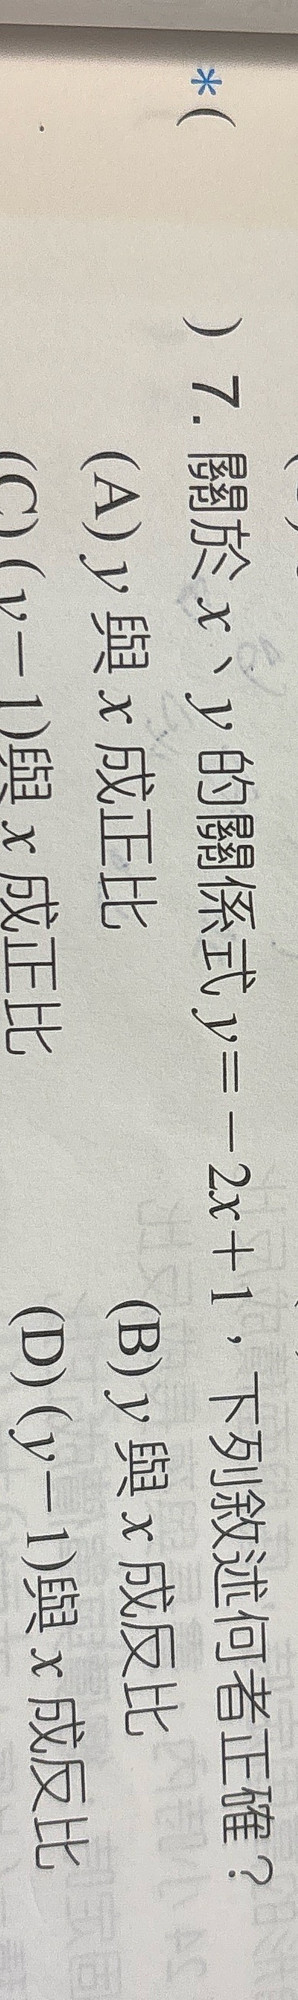 *(　　) 7. 關於 x、y 的關係式 y=-2x+1，下列敘述何者正確？
(A) y 與 x 成正比　　(B) y 與 x 成反比
(C) (y-1)與 x 成正比　　(D) (y-1)與 x 成反比